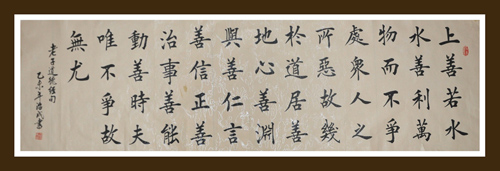 上善若水
水善利萬
物而不爭
處衆人之
所惡故幾
於道居善
地心善淵
與善仁言
善信正善
治事善能
動善時夫
唯不爭故
無尤
老子道德經句
乙未年書